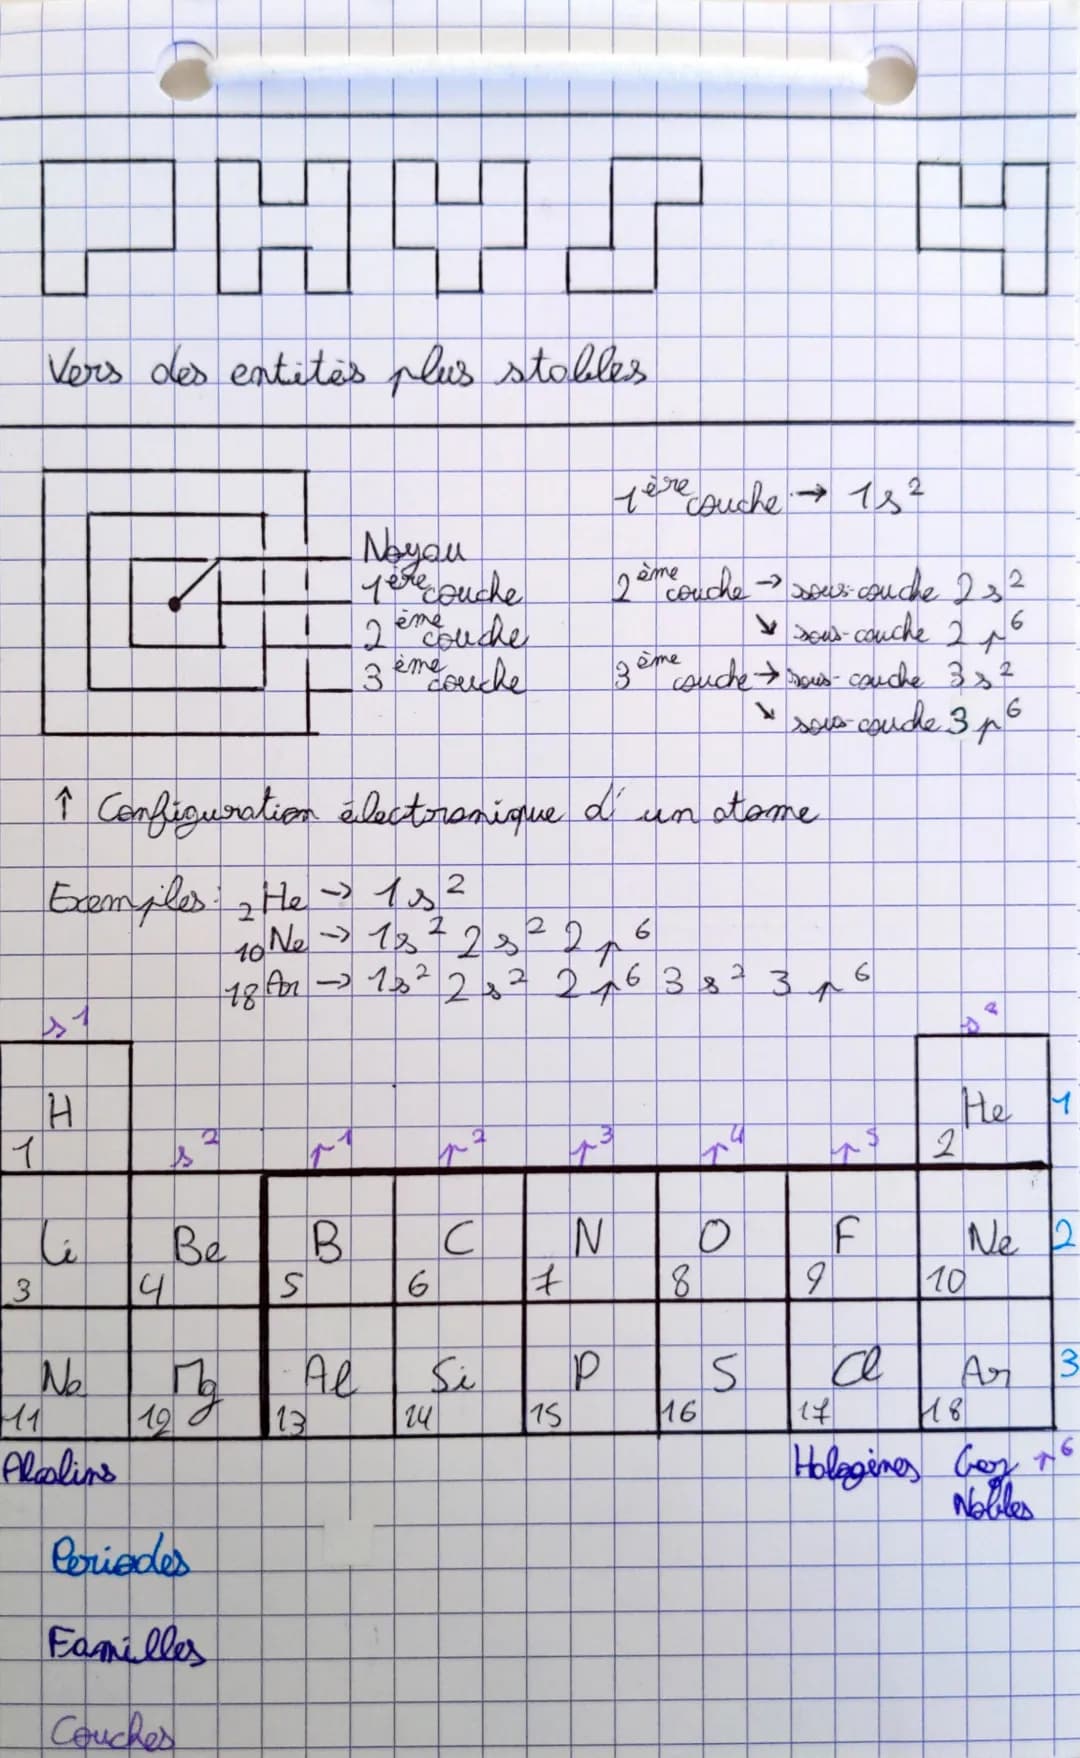 PHYS 4
Vers des entités plus stables
Noyau
1ère couche
2ème couche
3ème couche
1ère couche → 1s²
2ème couche → sous-couche 2s²
↘ sous-couche 2p⁶
3ème couche → sous-couche 3s²
↘ sous-couche 3p⁶
↑ Configuration électronique d'un atome
Exemples: ₂He → 1s²
₁₀Ne → 1s² 2s² 2p⁶
₁₈Ar → 1s² 2s² 2p⁶ 3s² 3p⁶
s¹ s²
H He 1
1 s² p¹ p² p³ p⁴ p⁵ 2
Li Be B C N O F Ne 2
3 4 5 6 7 8 9 10
Na Mg Al Si P S Cl Ar 3
11 12 13 14 15 16 17 18
Alcalins Halogènes Gaz p⁶
Nobles
Periodes
Familles
Couches